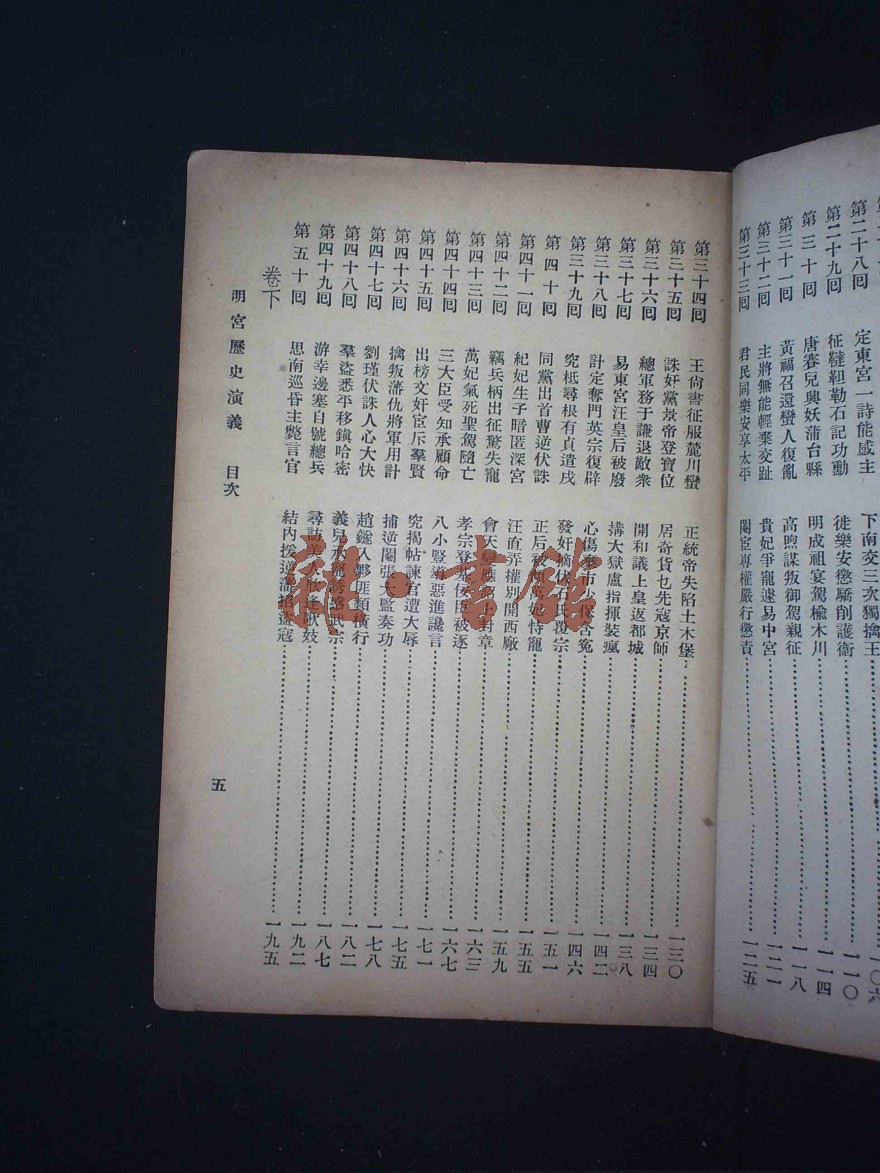 第二十八回 定東宮一詩能感主 下南交三次獨擒王 一〇六
第二十九回 征韃靼勒石記功勳 徙樂安懲驕削護衛 一一〇
第三十回 唐賽兒興妖蒲台縣 明成祖宴駕楡木川 一一四
第三十一回 黃福召還蠻人復亂 高煦謀叛御駕親征 一一八
第三十二回 主將無能輕棄交趾 貴妃爭寵遽易中宮 一二一
第三十三回 君民同樂安享太平 閹宦專權嚴行懲責 一二五
第三十四回 王尙書征服麓川蠻 正統帝失陷土木堡 一三〇
第三十五回 誅奸黨景帝登寶位 居奇貨乜先寇京師 一三四
第三十六回 總軍務于謙退敵衆 開和議上皇返都城 一三八
第三十七回 易東宮汪皇后被廢 搆大獄盧指揮裝瘋 一四二
第三十八回 計定奪門英宗復辟 心傷棄市少保含冤 一四六
第三十九回 究柢尋根有貞遣戍 發奸擿伏石氏覆宗 一五一
第四十回 同黨出首曹逆伏誅 正后被 萬妃恃寵 一五五
第四十一回 紀妃生子暗匿深宮 汪直弄權別開西廠 一五九
第四十二回 竊兵柄出征驚失寵 會天變應詔上封章 一六三
第四十三回 萬妃氣死聖駕隨亡 孝宗登基佞臣被逐 一六七
第四十四回 三大臣受知承顧命 八小豎導惡進讒言 一七一
第四十五回 出榜文奸宦斥羣賢 究揭帖諫官遭大辱 一七五
第四十六回 擒叛藩仇將軍用計 捕逆閹張太監奏功 一七八
第四十七回 劉瑾伏誅人心大快 趙鐩入夥匪類橫行 一八二
第四十八回 羣盜悉平移鎭哈密 義兒承寵誘惑武宗 一八七
第四十九回 游幸邊塞自號總兵 尋訪美人 歌妓 一九二
第五十回 思南巡昏主斃言官 結內援逆藩招盜寇 一九五
卷下
明宮歷史演義 目次
五
龍·書館